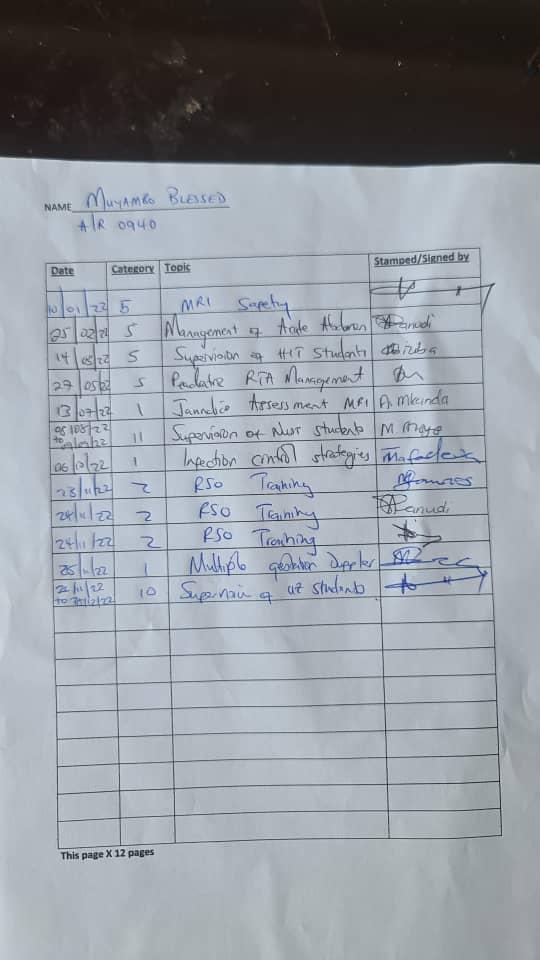 NAME MUYAMBO BLESSED
A/R 0940
Date Category Topic Stamped/Signed by
10/01/22 5 MRI Safety
25/02/22 5 Management of Acute Abdomen
14/03/22 5 Supervision of HIT Students
27/05/22 5 Paediatric RTA Management
13/07/22 1 Jaundice Assessment MRI A. Mkanda
to 11 Supervision of NUST students M
06/10/22 1 Infection control strategies
23/11/22 2 RSO Training
24/11/22 2 RSO Training
24/11/22 2 RSO Training
25/11/22 1 Multiple gestation Doppler
22/11/22
to 10 Supervision of UZ students
This page X 12 pages